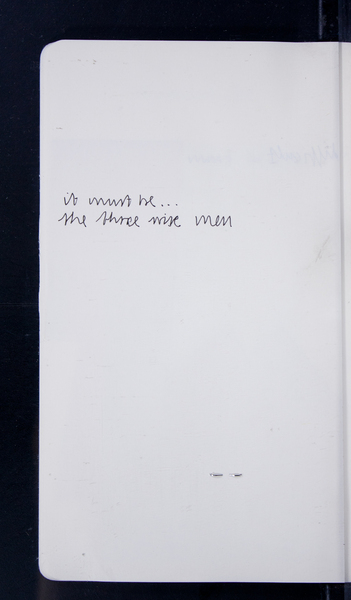 it must be...
the three wise men